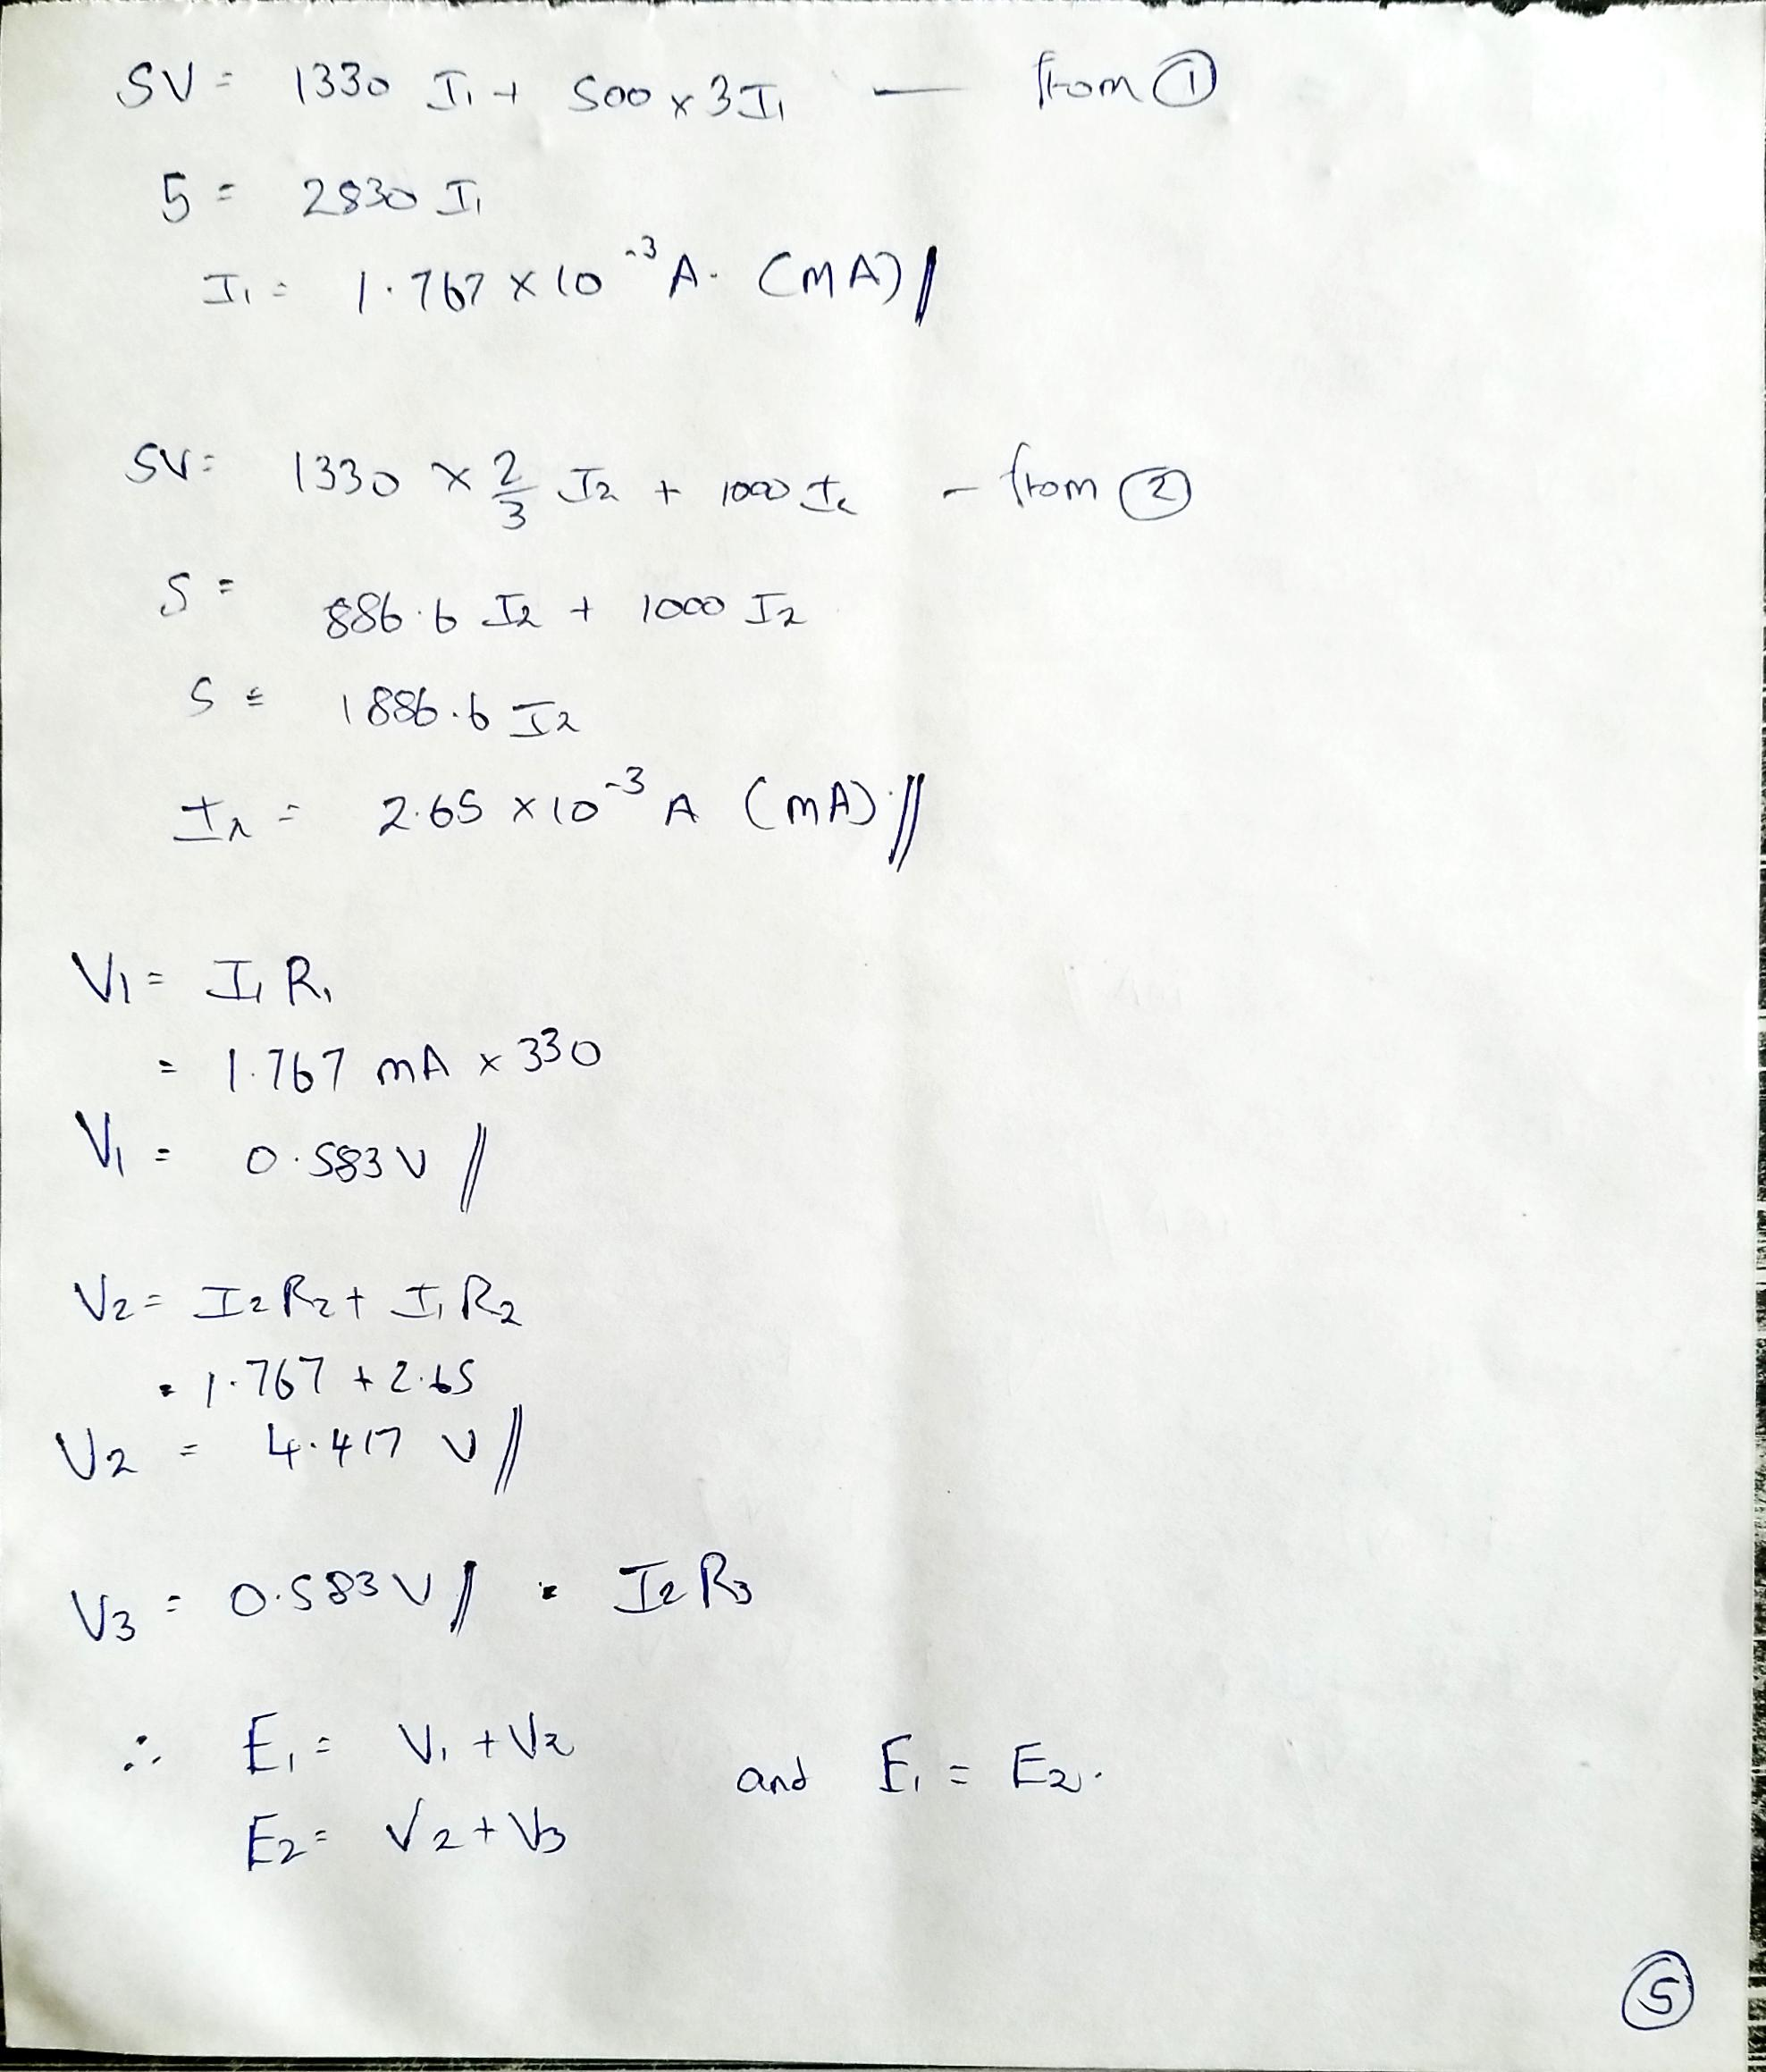 5V = 1330 I₁ + 500 x 3I₁ — from ①
5 = 2830 I₁
I₁ = 1.767 x 10⁻³ A. (mA) //
5V = 1330 x 2/3 I₂ + 1000 I₂ - from ②
5 = 886.6 I₂ + 1000 I₂
5 = 1886.6 I₂
I₂ = 2.65 x 10⁻³ A (mA) //
V₁ = I₁ R₁
= 1.767 mA x 330
V₁ = 0.583 V //
V₂ = I₂ R₂ + I₁ R₂
= 1.767 + 2.65
V₂ = 4.417 V //
V₃ = 0.583 V // = I₂ R₃
∴ E₁ = V₁ + V₂ and E₁ = E₂.
E₂ = V₂ + V₃
⑤